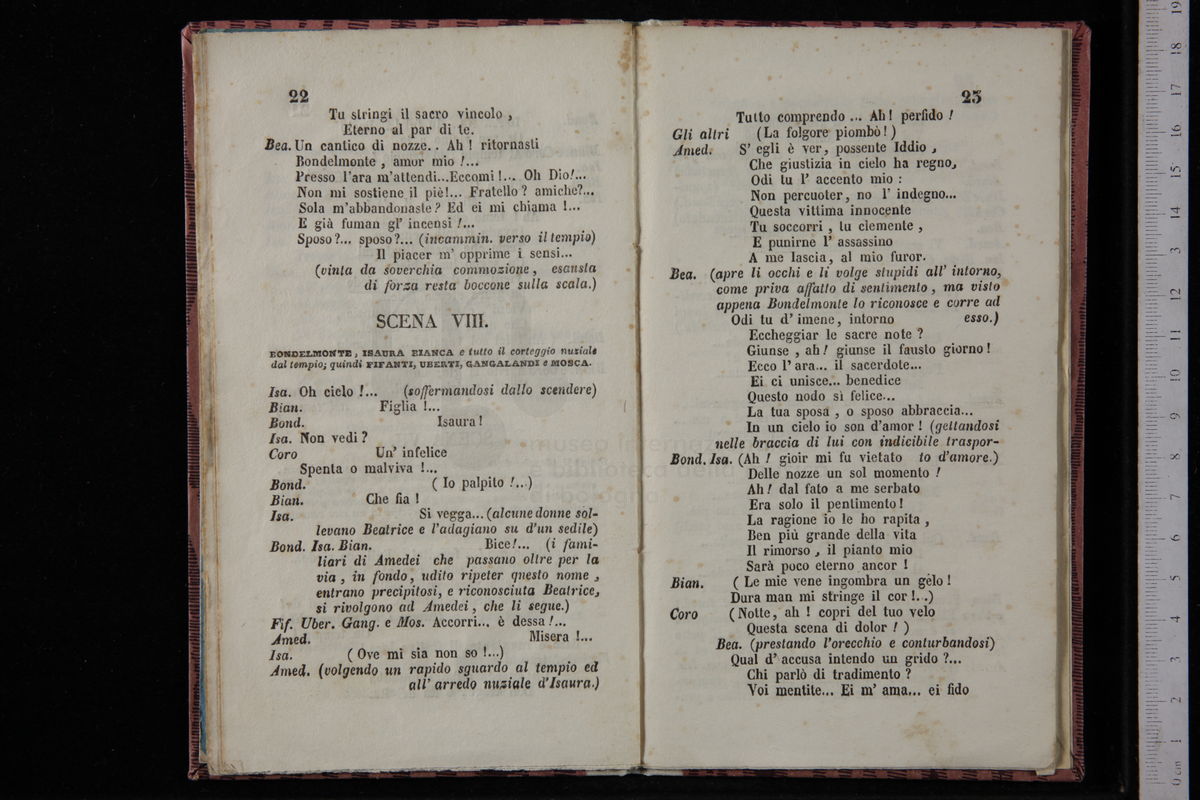 22
Tu stringi il sacro vincolo ,
Eterno al par di te.
Bea. Un cantico di nozze.. Ah ! ritornasti
Bondelmonte , amor mio !...
Presso l'ara m'attendi...Eccomi !... Oh Dio!...
Non mi sostiene il piè!... Fratello ? amiche?...
Sola m'abbandonaste ? Ed ei mi chiama !...
E già fuman gl' incensi !...
Sposo?... sposo?... (incammin. verso il tempio)
Il piacer m' opprime i sensi...
(vinta da soverchia commozione, esausta
di forza resta boccone sulla scala.)
SCENA VIII.
BONDELMONTE, ISAURA BIANCA e tutto il corteggio nuziale
dal tempio; quindi FIFANTI, UBERTI, GANGALANDI e MOSCA.
Isa. Oh cielo !... (soffermandosi dallo scendere)
Bian. Figlia !...
Bond. Isaura !
Isa. Non vedi ?
Coro Un' infelice
Spenta o malviva !...
Bond. ( Io palpito !...)
Bian. Che fia !
Isa. Si vegga... (alcune donne sol-
levano Beatrice e l'adagiano su d'un sedile)
Bond. Isa. Bian. Bice!... (i fami-
liari di Amedei che passano oltre per la
via , in fondo, udito ripeter questo nome ,
entrano precipitosi, e riconosciuta Beatrice,
si rivolgono ad Amedei , che li segue.)
Fif. Uber. Gang. e Mos. Accorri... è dessa !...
Amed. Misera !...
Isa. ( Ove mi sia non so !...)
Amed. (volgendo un rapido sguardo al tempio ed
all' arredo nuziale d'Isaura.)
23
Tutto comprendo ... Ah! perfido !
Gli altri (La folgore piombò ! )
Amed. S' egli è ver, possente Iddio ,
Che giustizia in cielo ha regno,
Odi tu l' accento mio :
Non percuoter, no l' indegno...
Questa vittima innocente
Tu soccorri , tu clemente ,
E punirne l' assassino
A me lascia, al mio furor.
Bea. (apre li occhi e li volge stupidi all' intorno,
come priva affatto di sentimento , ma visto
appena Bondelmonte lo riconosce e corre ad
Odi tu d' imene, intorno esso.)
Eccheggiar le sacre note ?
Giunse , ah! giunse il fausto giorno !
Ecco l' ara... il sacerdote...
Ei ci unisce... benedice
Questo nodo sì felice...
La tua sposa , o sposo abbraccia...
In un cielo io son d'amor ! (gettandosi
nelle braccia di lui con indicibile traspor-
Bond. Isa. (Ah ! gioir mi fu vietato to d'amore.)
Delle nozze un sol momento !
Ah! dal fato a me serbato
Era solo il pentimento !
La ragione io le ho rapita ,
Ben più grande della vita
Il rimorso , il pianto mio
Sarà poco eterno ancor !
Bian. ( Le mie vene ingombra un gèlo !
Dura man mi stringe il cor !. .)
Coro ( Notte, ah ! copri del tuo velo
Questa scena di dolor ! )
Bea. (prestando l'orecchio e conturbandosi)
Qual d' accusa intendo un grido ?...
Chi parlò di tradimento ?
Voi mentite... Ei m' ama... ei fido